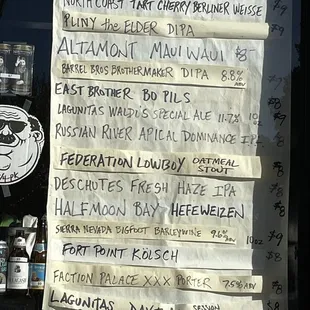 NORTH COAST TART CHERRY BERLINER WEISSE $9
PLINY the ELDER DIPA $9
ALTAMONT MAUI WAUI $8
BARREL BROS BROTHERMAKER DIPA 8.8% ABV
EAST BROTHER BO PILS $8
LAGUNITAS WALDO'S SPECIAL ALE 11.7% 10 oz $9
RUSSIAN RIVER APICAL DOMINANCE IPA $8
FEDERATION LOWBOY OATMEAL STOUT $8
DESCHUTES FRESH HAZE IPA $8
HALFMOON BAY HEFEWEIZEN $8
SIERRA NEVADA BIGFOOT BARLEYWINE 9.6% ABV 10oz $9
FORT POINT KÖLSCH $8
FACTION PALACE XXX PORTER 7.5% ABV $8
LAGUNITAS SESSION $8